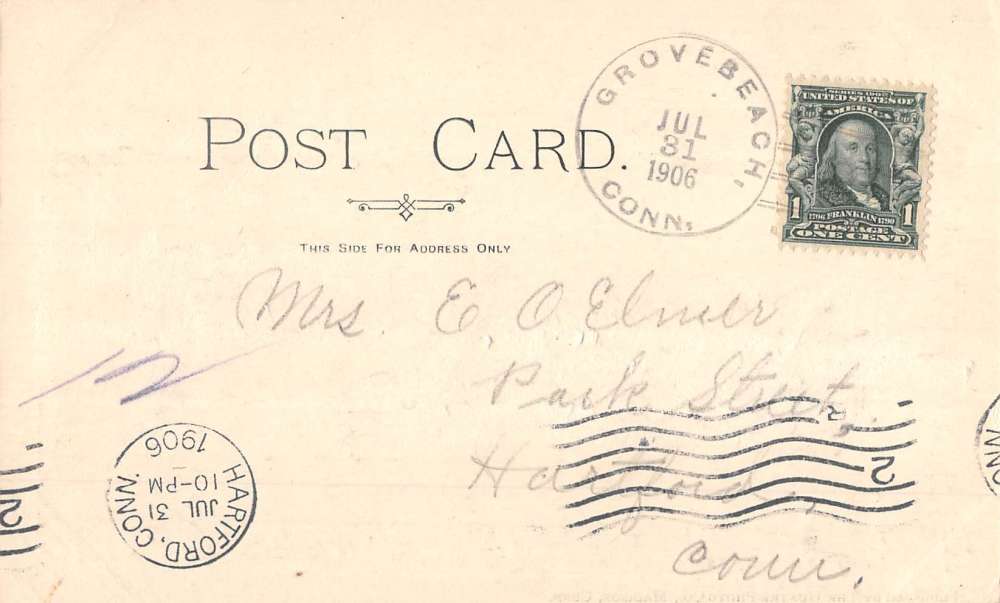 POST CARD.
THIS SIDE FOR ADDRESS ONLY
GROVEBEACH, CONN.
JUL
31
1906
SERIES 1902
UNITED STATES OF
AMERICA
1 1706 FRANKLIN 1790 1
POSTAGE
ONE CENT
Mrs. E. O. Elmer
Park Street,
Hartford,
Conn.
2
HARTFORD, CONN.
JUL 31
10-PM
1906
2
NNO